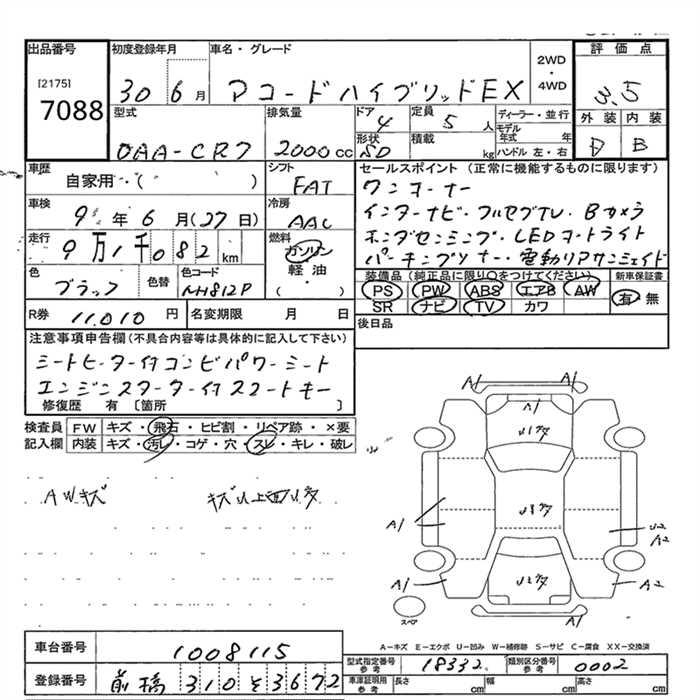 出品番号 初度登録年月 車名・グレード 評価点
[2175]
7088
30 6月 アコードハイブリッドEX
2WD・4WD
3.5
型式 排気量 ドア 定員 ディーラー・並行 外装 内装
DAA-CR7 2000cc 4 5人 モデル年式 年 D B
形状 積載 kg ハンドル 左・右
5D
車歴 シフト セールスポイント (正常に機能するものに限ります)
自家用・( ) FAT ワンオーナー
車検 冷房 インターナビ・フルセグTV・Bカメラ
9年6月(27日) AAC ホンダセンシング・LEDヘッドライト
走行 燃料 パーキングソナー・電動リアサンシェイド
9万1千082km ガソリン
軽油
( )
色 色替 色コード 装備品 (純正品に限り○をつけてください) 新車保証書
ブラック NH812P PS PW ABS エアB AW 有 無
SR ナビ TV カワ
R券 11,010円 名変期限 月 日 後日品
注意事項申告欄(不具合内容等は具体的に記入して下さい)
シートヒーター付コンビパワーシート
エンジンスターター付スマートキー
修復歴 有 〔箇所 〕
検査員 FW キズ・飛石・ヒビ割・リペア跡・×要
記入欄 内装 キズ・汚レ・コゲ・穴・スレ・キレ・破レ
AWキズ キズ以上凹多
A1 A1
A1
U1キタ
U1キタ
A1 U2
A2
A1 U2キタ A2
スペア
A―キズ E―エクボ U―凹み W―補修跡 S―サビ C―腐食 XX―交換済
車台番号 1008115
型式指定番号 参考 18332 類別区分番号 参考 0002
登録番号 前橋 310 そ 3672
車庫証明用 参考 長さ cm 幅 cm 高さ cm